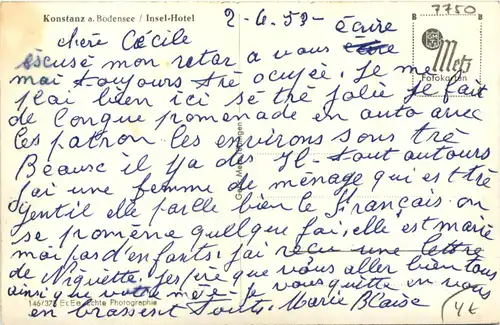 Konstanz a. Bodensee / Insel-Hotel
2-6.53-
7750
B B
Metz
Fotokarten
écrire
chére Cécile
éscusé mon retar a vous
moi toujours trè ocuyée, Je me
plai bien ici sé trè jolie Je fait
de Longue promenade en auto avec
les patron les environs sous trè
Beausc il ya de tout autours
j'ai une femme de ménage qui est trè
gentil elle parle bien le Français. on
se promène quelque fai, elle est marié
mai pas d'enfants. j'ai recu une lettre
de Niquette, jespère que vous aller bien tous
ainsi que votre mère Je vous quitte en vous
en brassent touts. Marie Blaise
146/37 EcEe Echte Photographie
4€
Gebr. Metz, Tübingen